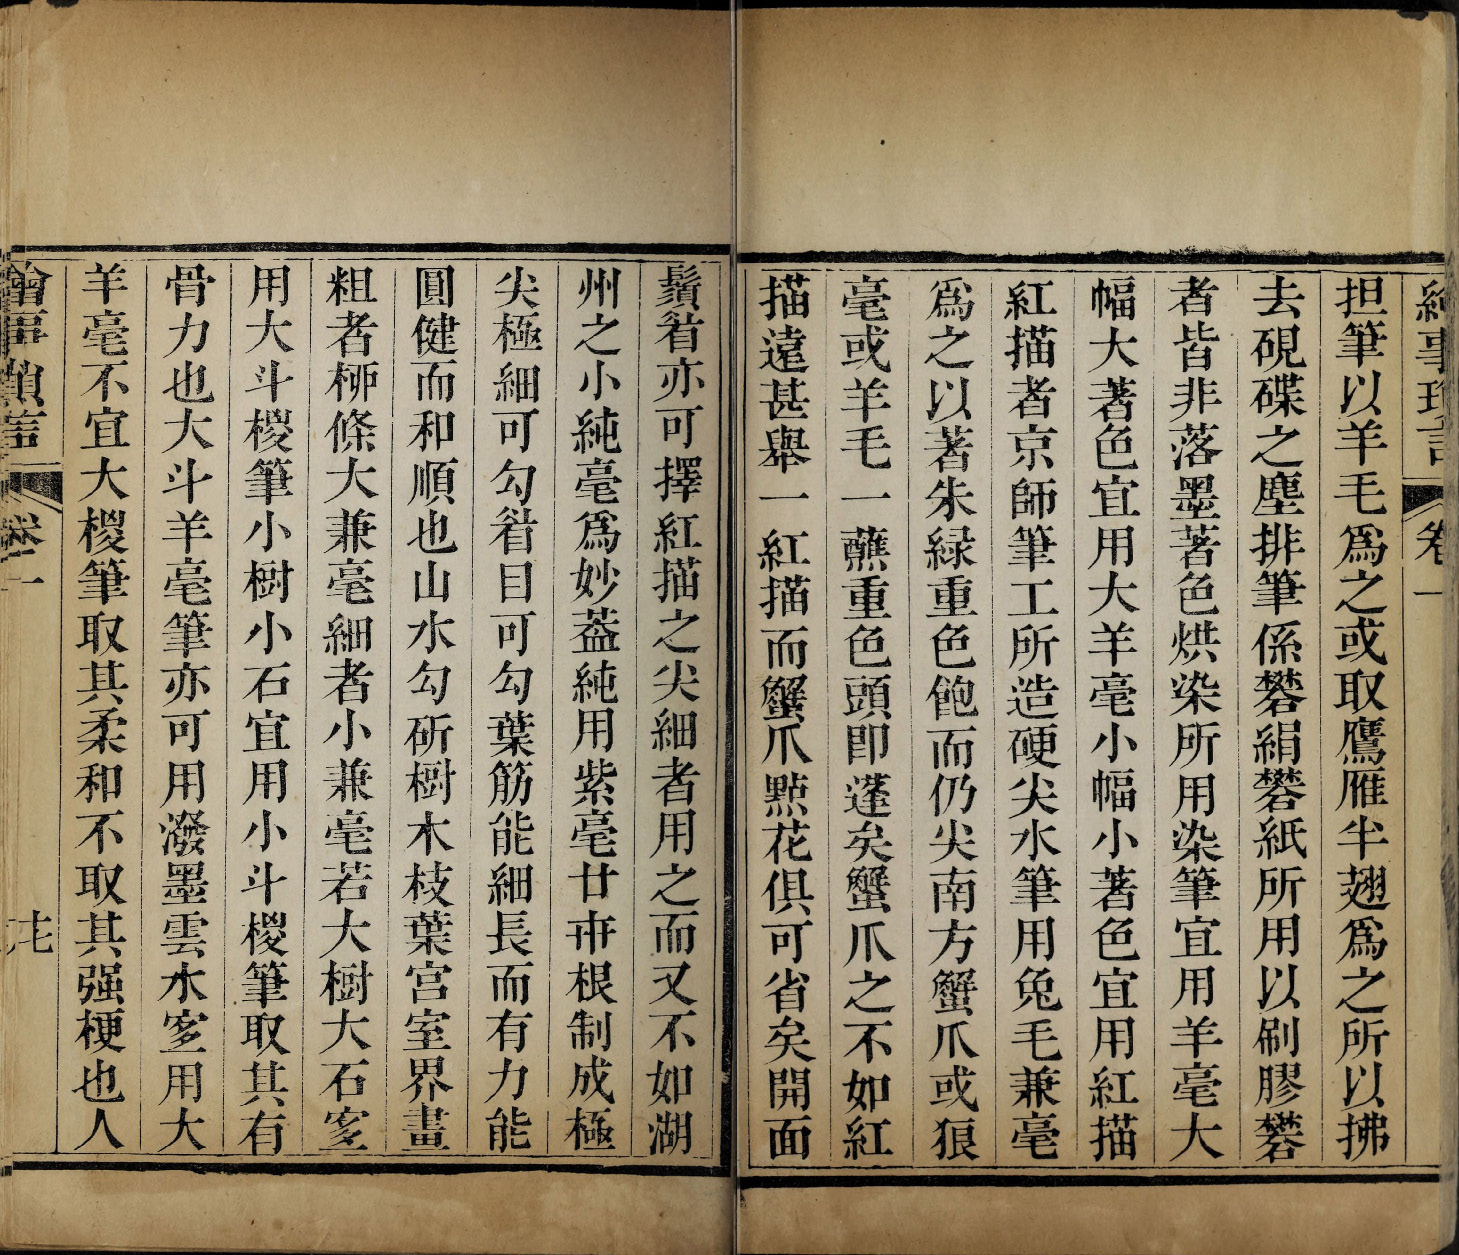 繪事瑣言 卷一
担筆以羊毛爲之或取鷹雁半翅爲之所以拂
去硯碟之塵排筆係礬絹礬紙所用以刷膠礬
者皆非落墨著色烘染所用染筆宜用羊毫大
幅大著色宜用大羊毫小幅小著色宜用紅描
紅描者京師筆工所造硬尖水筆用兔毛兼毫
爲之以著朱緑重色飽而仍尖南方蟹爪或狼
毫或羊毛一蘸重色頭即蓬矣蟹爪之不如紅
描遠甚舉一紅描而蟹爪㸃花俱可省矣開面
鬚眉亦可擇紅描之尖細者用之而又不如湖
州之小純毫爲妙葢純用紫毫廿卅根制成極
尖極細可勾眉目可勾葉筋能細長而有力能
圓健而和順也山水勾斫樹木枝葉宮室界畫
粗者柳條大兼毫細者小兼毫若大樹大石宜
用大斗椶筆小樹小石宜用小斗椶筆取其有
骨力也大斗羊毫筆亦可用潑墨雲水宜用大
羊毫不宜大椶筆取其柔和不取其强梗也人
繪事瑣言 卷一